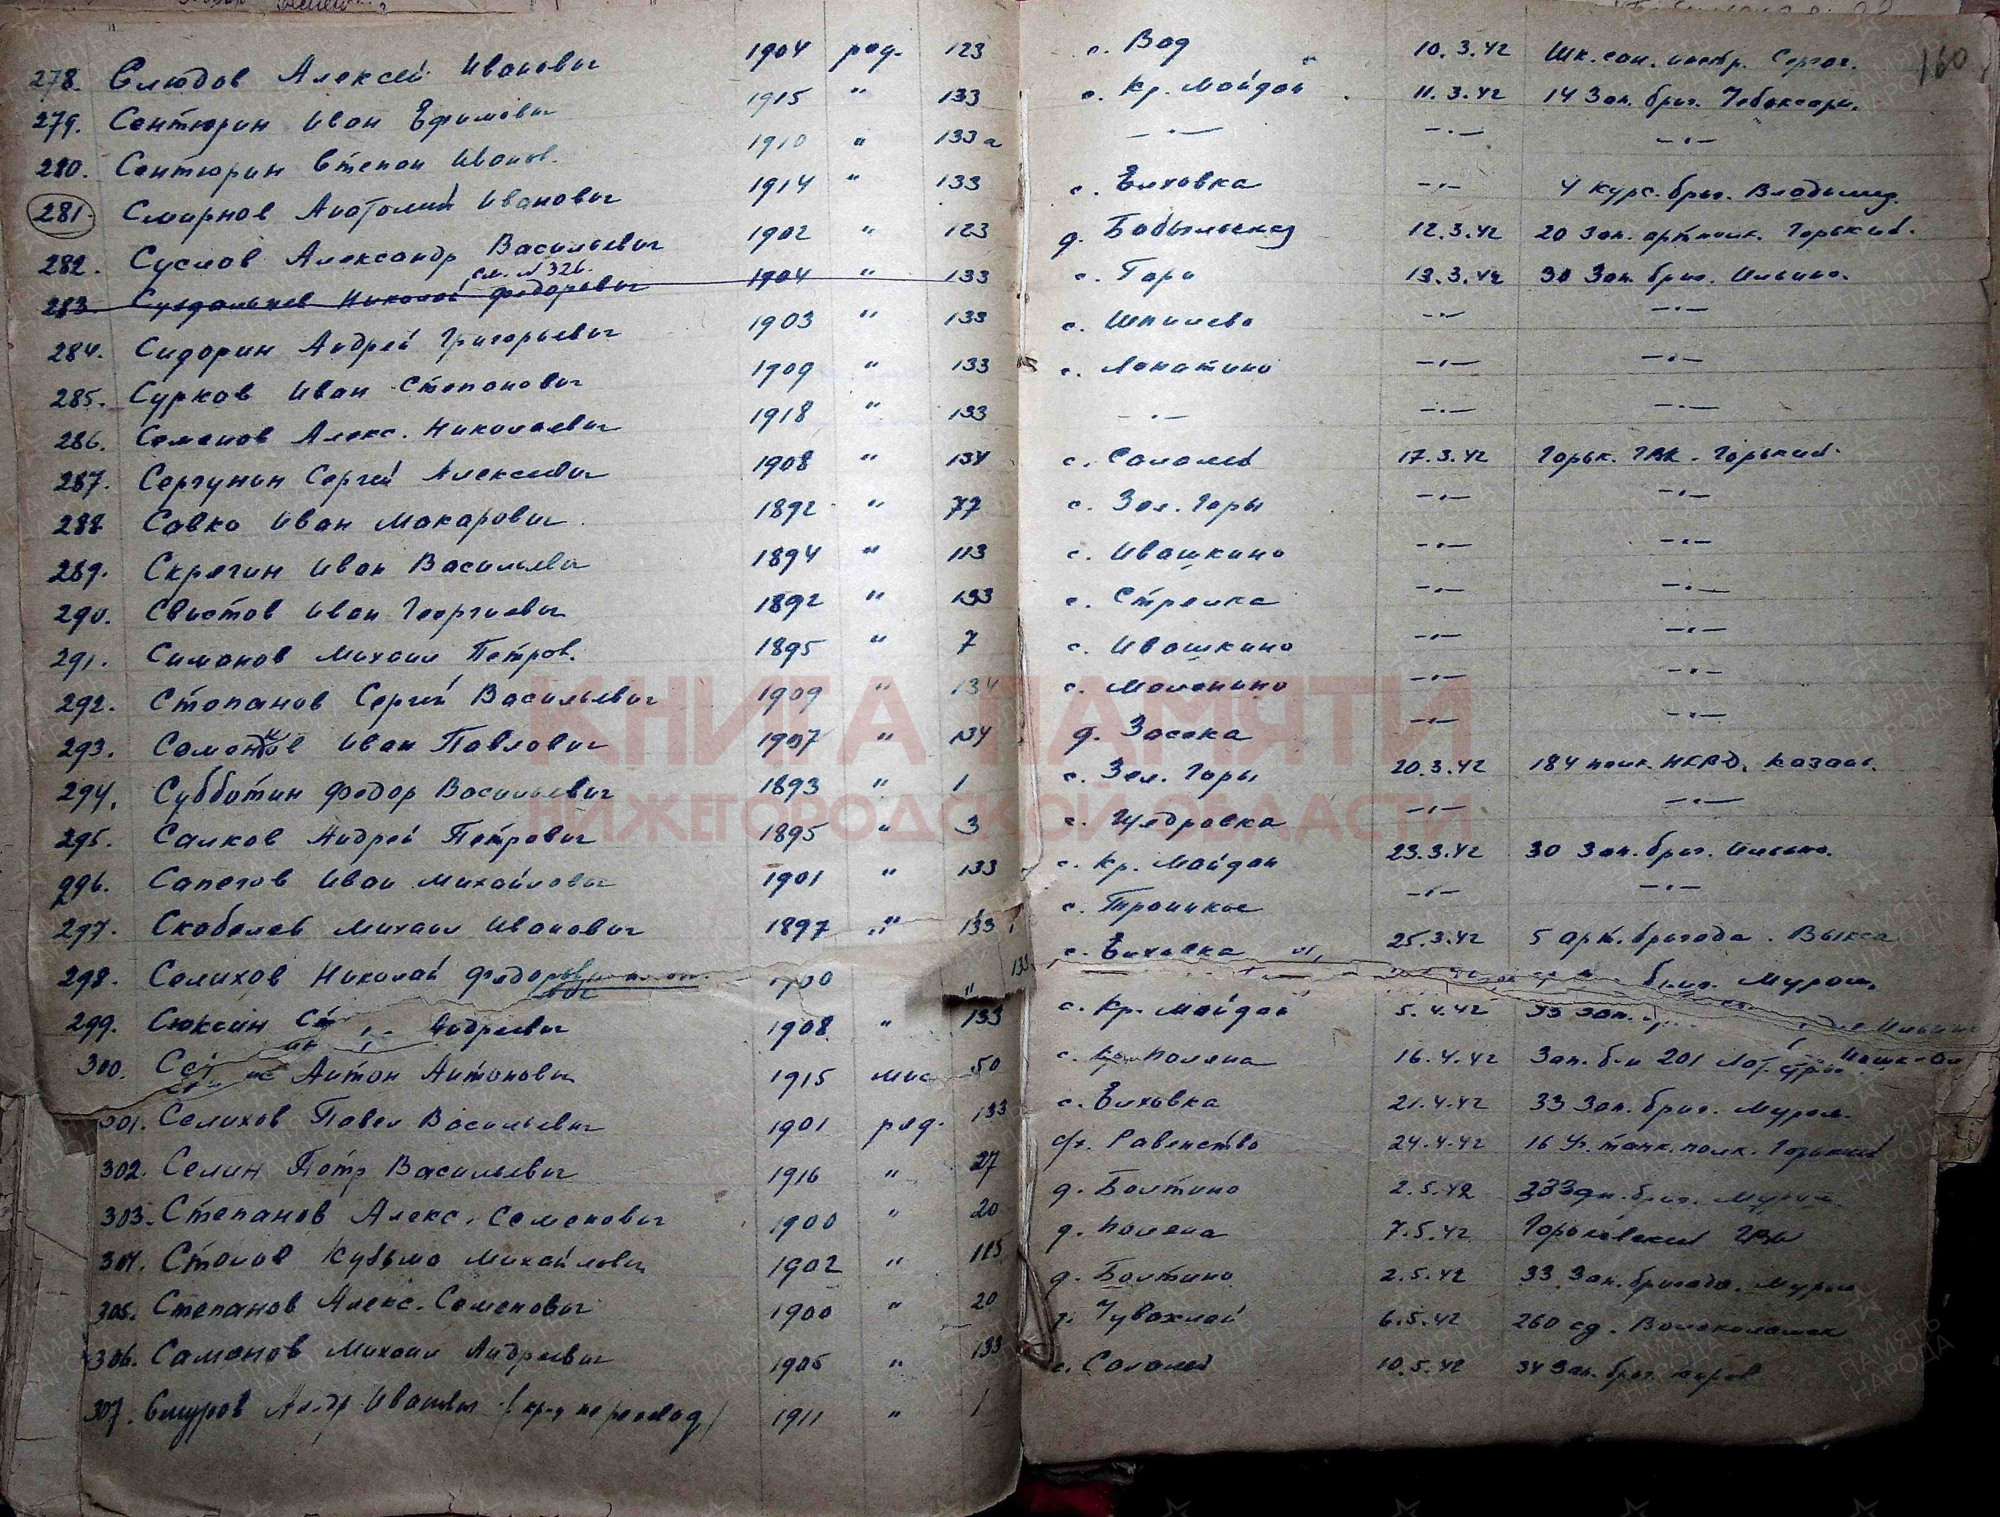 278. Слюдов Алексей Иванович 1904 ряд. 123 с. Вад 10.3.42 Шк. сан. инстр. Сергач. 160
279. Сентюрин Иван Ефимович 1915 " 133 с. Кр. Майдан 11.3.42 14 Зап. бриг. Чебоксары.
280. Сентюрин Степан Иванов. 1910 " 133а —„— —„— —„—
281. Смирнов Анатолий Иванович 1914 " 133 с. Елховка —„— 4 курс. бриг. Владимир.
282. Суслов Александр Васильевич 1902 " 123 д. Бобыльская 12.3.42 20 Зап. арт. полк. Горький.
см. N 326.
283. Суздальцев Николай Федорович 1904 " 133 с. Гари 13.3.42 30 Зап. бриг. Ильино.
284. Сидорин Андрей Григорьевич 1903 " 133 с. Шпилево —„— —„—
285. Сурков Иван Степанович 1909 " 133 с. Лопатино —„— —„—
286. Семенов Алекс. Николаевич 1918 " 133 —„— —„— —„—
287. Сергунин Сергей Алексеевич 1908 " 134 с. Салалей 17.3.42 Горьк. ГВК. Горький.
288 Савко Иван Макарович 1892 " 77 с. Зел. Горы —„— —„—
289. Скрягин Иван Васильевич 1894 " 113 с. Ивашкино —„— —„—
290. Свистов Иван Георгиевич 1892 " 133 с. Стрелка —„— —„—
291. Симонов Михаил Петров. 1895 " 7 с. Ивашкино —„— —„—
292. Степанов Сергей Васильевич 1909 " 134 с. Меленино —„— —„—
293. Саманов Иван Павлович 1907 " 134 д. Засека —„— —„—
294. Субботин Федор Васильевич 1893 " 1 с. Зел. Горы 20.3.42 184 полк. НКВД. Казань.
295. Салков Андрей Петрович 1895 " 3 с. Щедровка —„— —„—
296. Сапегов Иван Михайлович 1901 " 133 с. Кр. Майдан 23.3.42 30 Зап. бриг. Ильино.
297. Скобелев Михаил Иванович 1897 " 133 с. Троицкое —„— —„—
298. Селихов Николай Федорович 1900 " 133 с. Елховка 25.3.42 5 арт. бригада. Выкса
бриг. Муром.
299. Сюксин Андреевич 1908 " 133 с. Кр. Майдан 5.4.42 33 Зап.
300. Антон Антонович 1915 50 с. Поляна 16.4.42 Зап. б-н 201 Лат. стр.
301. Селихов Павел Васильевич 1901 ряд. 133 с. Елховка 21.4.42 33 Зап. бриг. Муром.
302. Селин Петр Васильевич 1916 " 27 с/х. Равенство 24.4.42 16 Уч. танк. полк. Горький
303. Степанов Алекс. Семенович 1900 " 20 д. Болтино 2.5.42 33 Зап. бриг. Муром.
304. Столов Кузьма Михайлович 1902 " 115 д. Поляна 7.5.42 Горьковский ГВК
305. Степанов Алекс. Семенович 1900 " 20 д. Болтино 2.5.42 33 Зап. бригада. Муром
306. Саманов Михаил Андреевич 1905 " 133 д. Чувахлей 6.5.42 260 сд. Волоколамск
307. Смуров Ал-др Иванович 1911 " 1 с. Салалей 10.5.42 34 Зап. бриг. Киров
КНИГА ПАМЯТИ
НИЖЕГОРОДСКОЙ ОБЛАСТИ